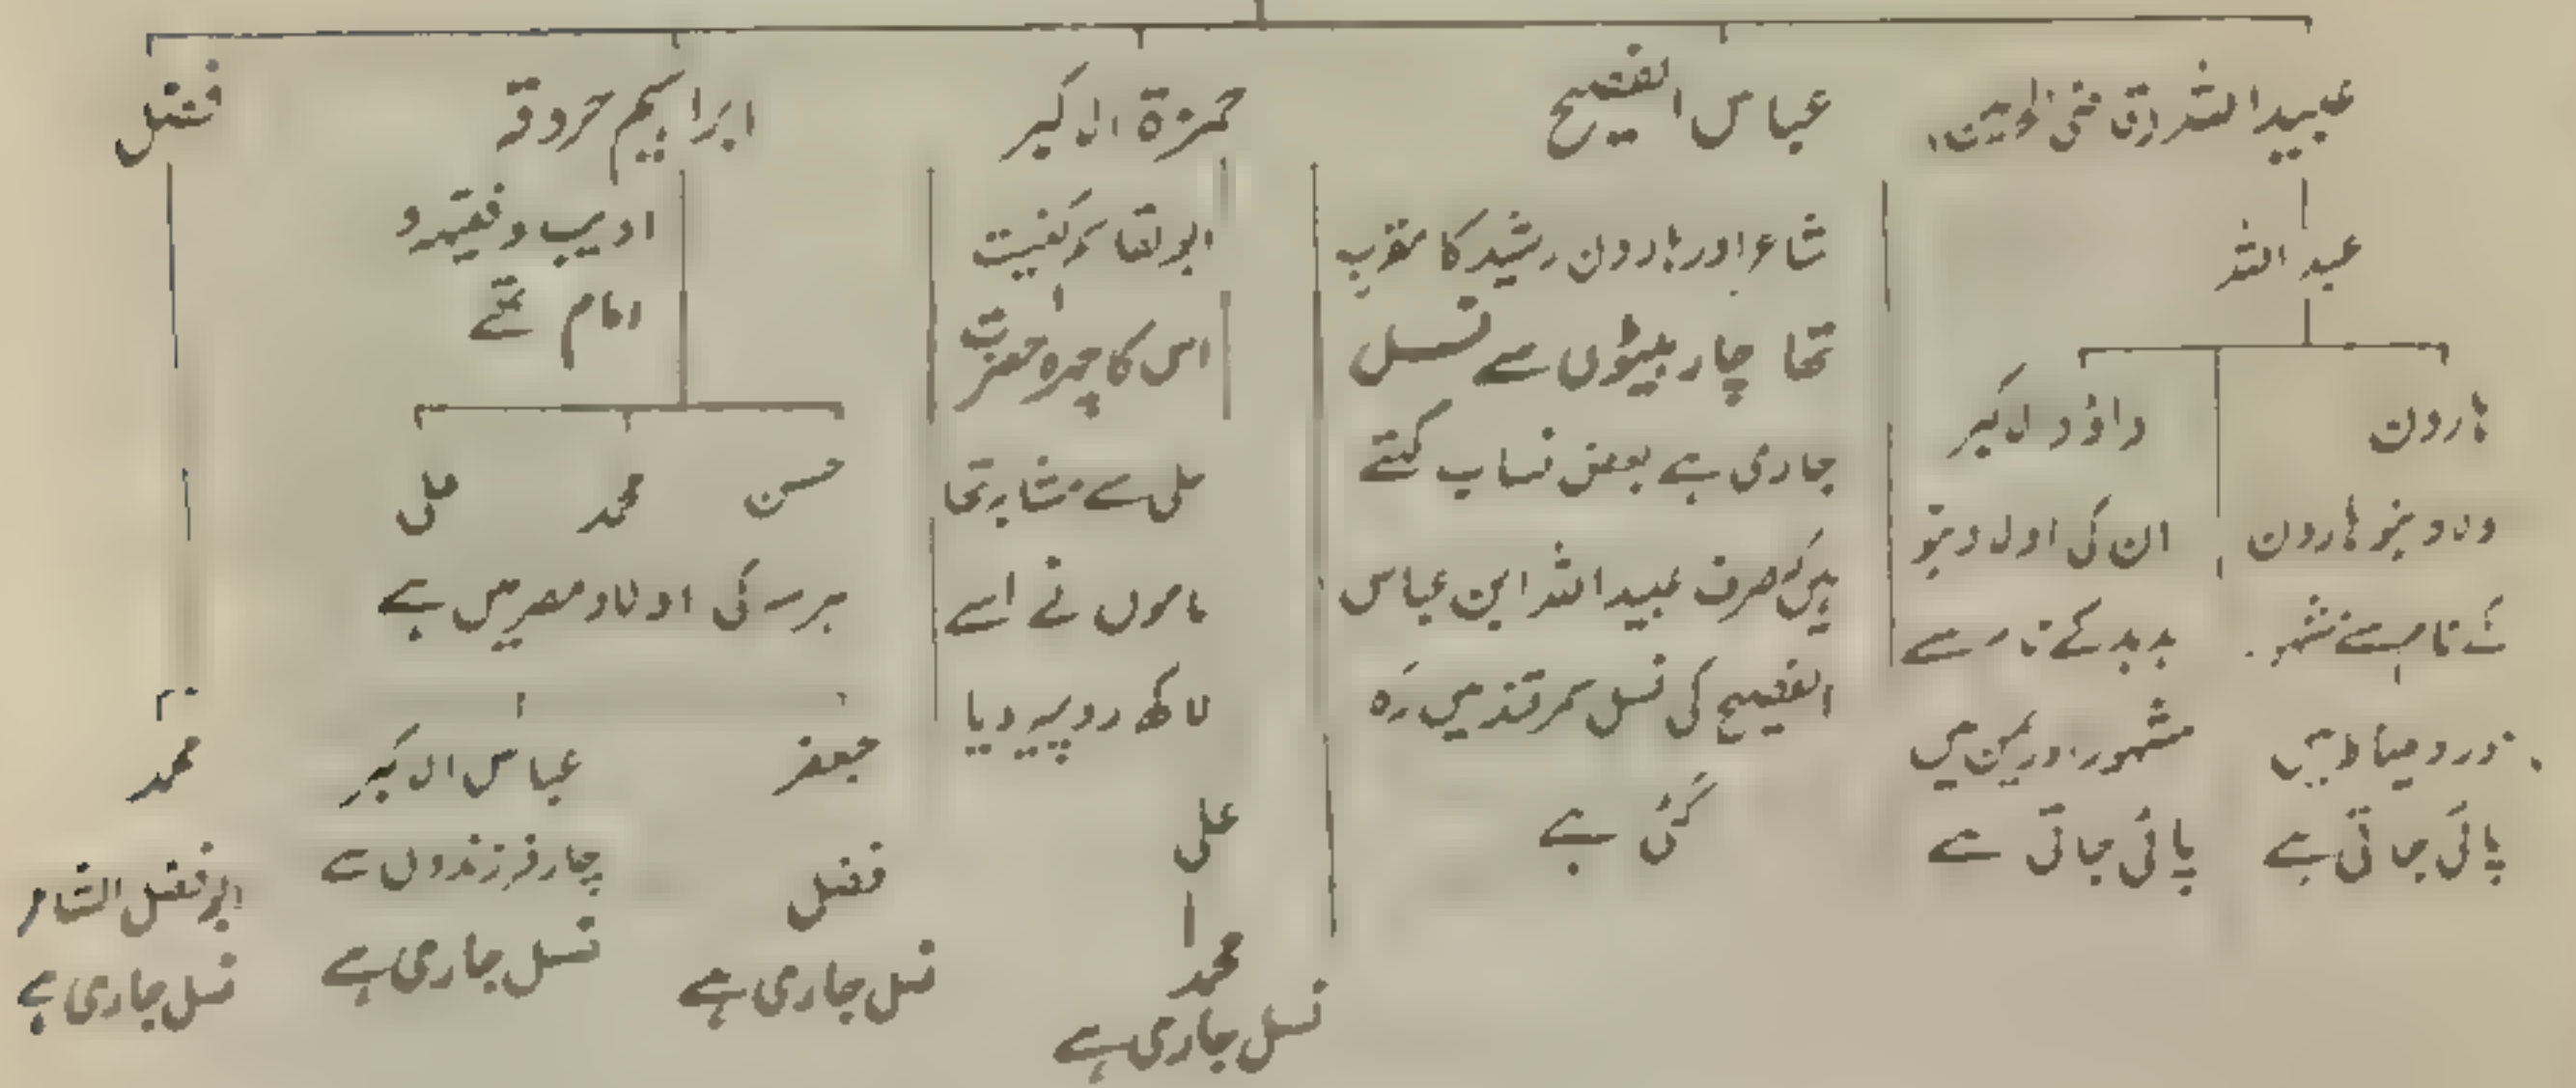 عبیداللہ
عبداللہ
ہارون
اولاد بنو ہارون
کے نام سے مشہور
اور دمیاط میں
پائی جاتی ہے
داؤد الاکبر
ان کی اولاد بنو
ہدہد کے نام سے
مشہور اور یمن میں
پائی جاتی ہے
عباس الفصیح
شاعر اور ہارون رشید کا مقرب
تھا چار بیٹوں سے نسل
جاری ہے بعض نساب کہتے
ہیں کہ صرف عبیداللہ ابن عباس
الفصیح کی نسل سمرقند میں رہ
گئی ہے
حمزۃ الاکبر
ابوالقاسم کنیت
اس کا چہرہ حضرت
علی سے مشابہ تھا
ماموں نے اسے
لاکھ روپیہ دیا
علی
محمد
نسل جاری ہے
ابراہیم جروقہ
ادیب و فقیہ و
امام تھے
حسن محمد علی
ہر سہ کی اولاد مصر میں ہے
فضل
جعفر
فضل
نسل جاری ہے
عباس الاکبر
چار فرزندوں سے
نسل جاری ہے
محمد
ابو فضل الشاعر
نسل جاری ہے